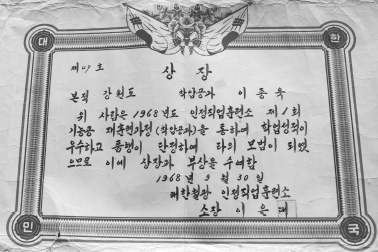 대 한
제 01 호
상 장
본적 강원도 착암공과 이 종 욱
위 사람은 1968년도 인정직업훈련소 제1회
기능공 재훈련과정(착암공과)을 통하여 학업성적이
우수하고 품행이 단정하여 타의 모범이 되었
으므로 이에 상장과 부상을 수여함
1968년 9월 30일
인정직업훈련소
소장 이 은
민 국